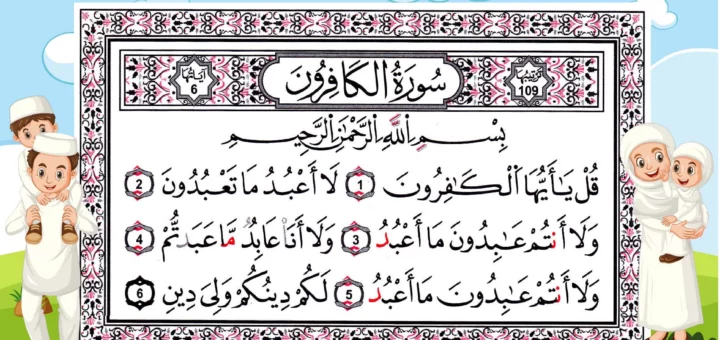 ترتيبها 109 سُورَةُ الكَافِرُونَ آياتها 6
بِسْمِ اللَّهِ الرَّحْمَٰنِ الرَّحِيمِ
قُلْ يَـٰٓأَيُّهَا ٱلْكَـٰفِرُونَ 1 لَآ أَعْبُدُ مَا تَعْبُدُونَ 2
وَلَآ أَنتُمْ عَـٰبِدُونَ مَآ أَعْبُدُ 3 وَلَآ أَنَا۠ عَابِدٌ مَّا عَبَدتُّمْ 4
وَلَآ أَنتُمْ عَـٰبِدُونَ مَآ أَعْبُدُ 5 لَكُمْ دِينُكُمْ وَلِىَ دِينِ 6